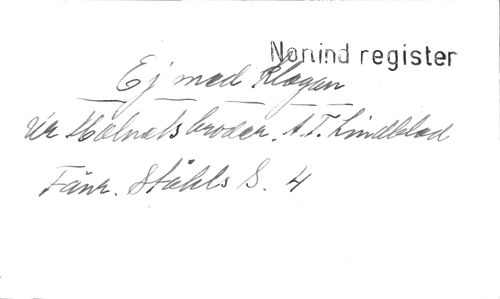 Nonind register
Ej med klagan
Ur Hålnats broder. A.T. Lindblad
Fänr. Ståhls S. 4